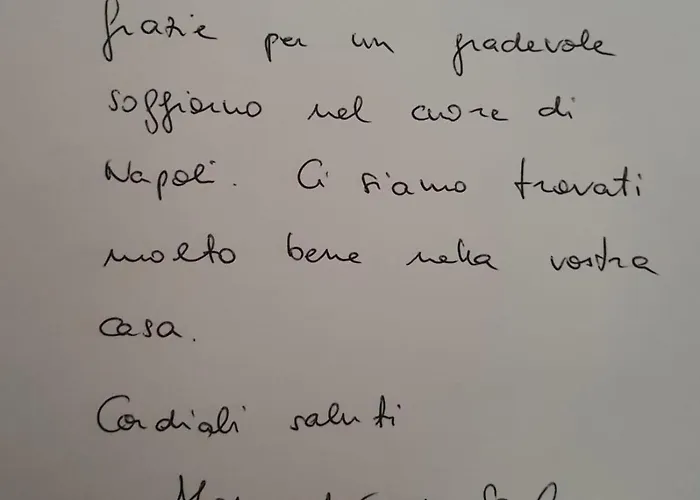 Grazie per un gradevole
soggiorno nel cuore di
Napoli. Ci siamo trovati
molto bene nella vostra
casa.
Cordiali saluti